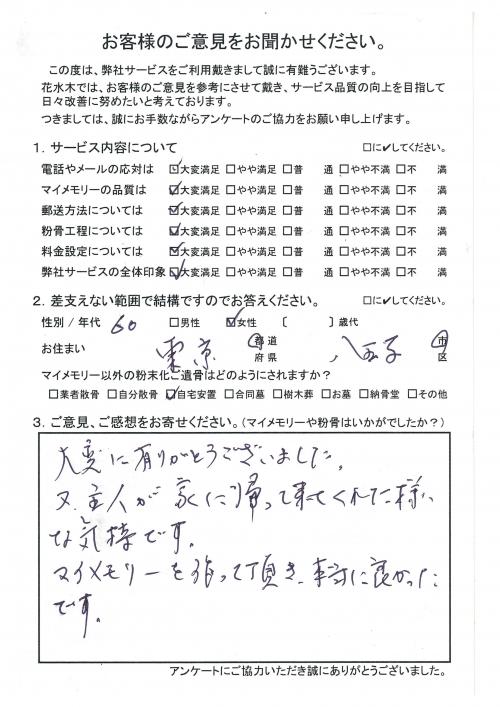 お客様のご意見をお聞かせください。
この度は、弊社サービスをご利用戴きまして誠に有難うございます。
花水木では、お客様のご意見を参考にさせて戴き、サービス品質の向上を目指して
日々改善に努めたいと考えております。
つきましては、誠にお手数ながらアンケートのご協力をお願い申し上げます。
1．サービス内容について □に✔してください。
電話やメールの応対は ☑大変満足 □やや満足 □普　通 □やや不満 □不　満
マイメモリーの品質は ☑大変満足 □やや満足 □普　通 □やや不満 □不　満
郵送方法については ☑大変満足 □やや満足 □普　通 □やや不満 □不　満
粉骨工程については ☑大変満足 □やや満足 □普　通 □やや不満 □不　満
料金設定については ☑大変満足 □やや満足 □普　通 □やや不満 □不　満
弊社サービスの全体印象 ☑大変満足 □やや満足 □普　通 □やや不満 □不　満
2．差支えない範囲で結構ですのでお答えください。 □に✔してください。
性別 / 年代 60 □男性 ☑女性 〔　　〕歳代
お住まい 東京 都道府県 八王子 市区
マイメモリー以外の粉末化ご遺骨はどのようにされますか？
□業者散骨 □自分散骨 ☑自宅安置 □合同墓 □樹木葬 □お墓 □納骨堂 □その他
3．ご意見、ご感想をお寄せください。（マイメモリーや粉骨はいかがでしたか？）
大変に有りがとうございました。
又、主人が家に帰って来てくれた様
な気持です。
マイメモリーを作って頂き、本当に良かった
です。
アンケートにご協力いただき誠にありがとうございました。